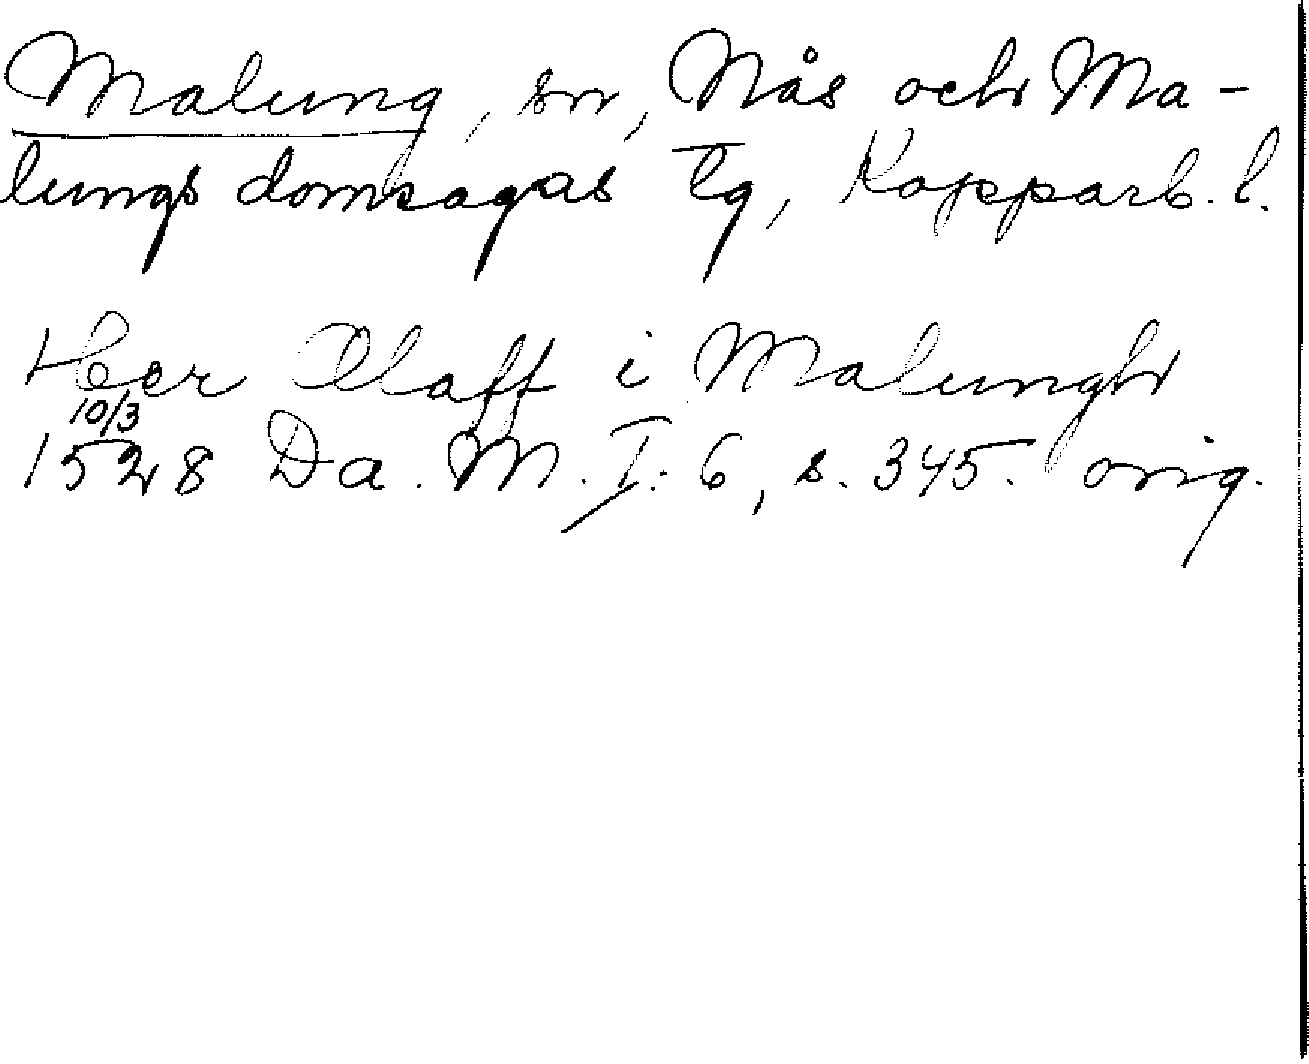 Malung, sn, Nås och Ma-
lungs domsagas tg, Kopparb. l.
Heer Olaff i Malungh
10/3
1528 Da. M. I: 6, s. 345. orig.